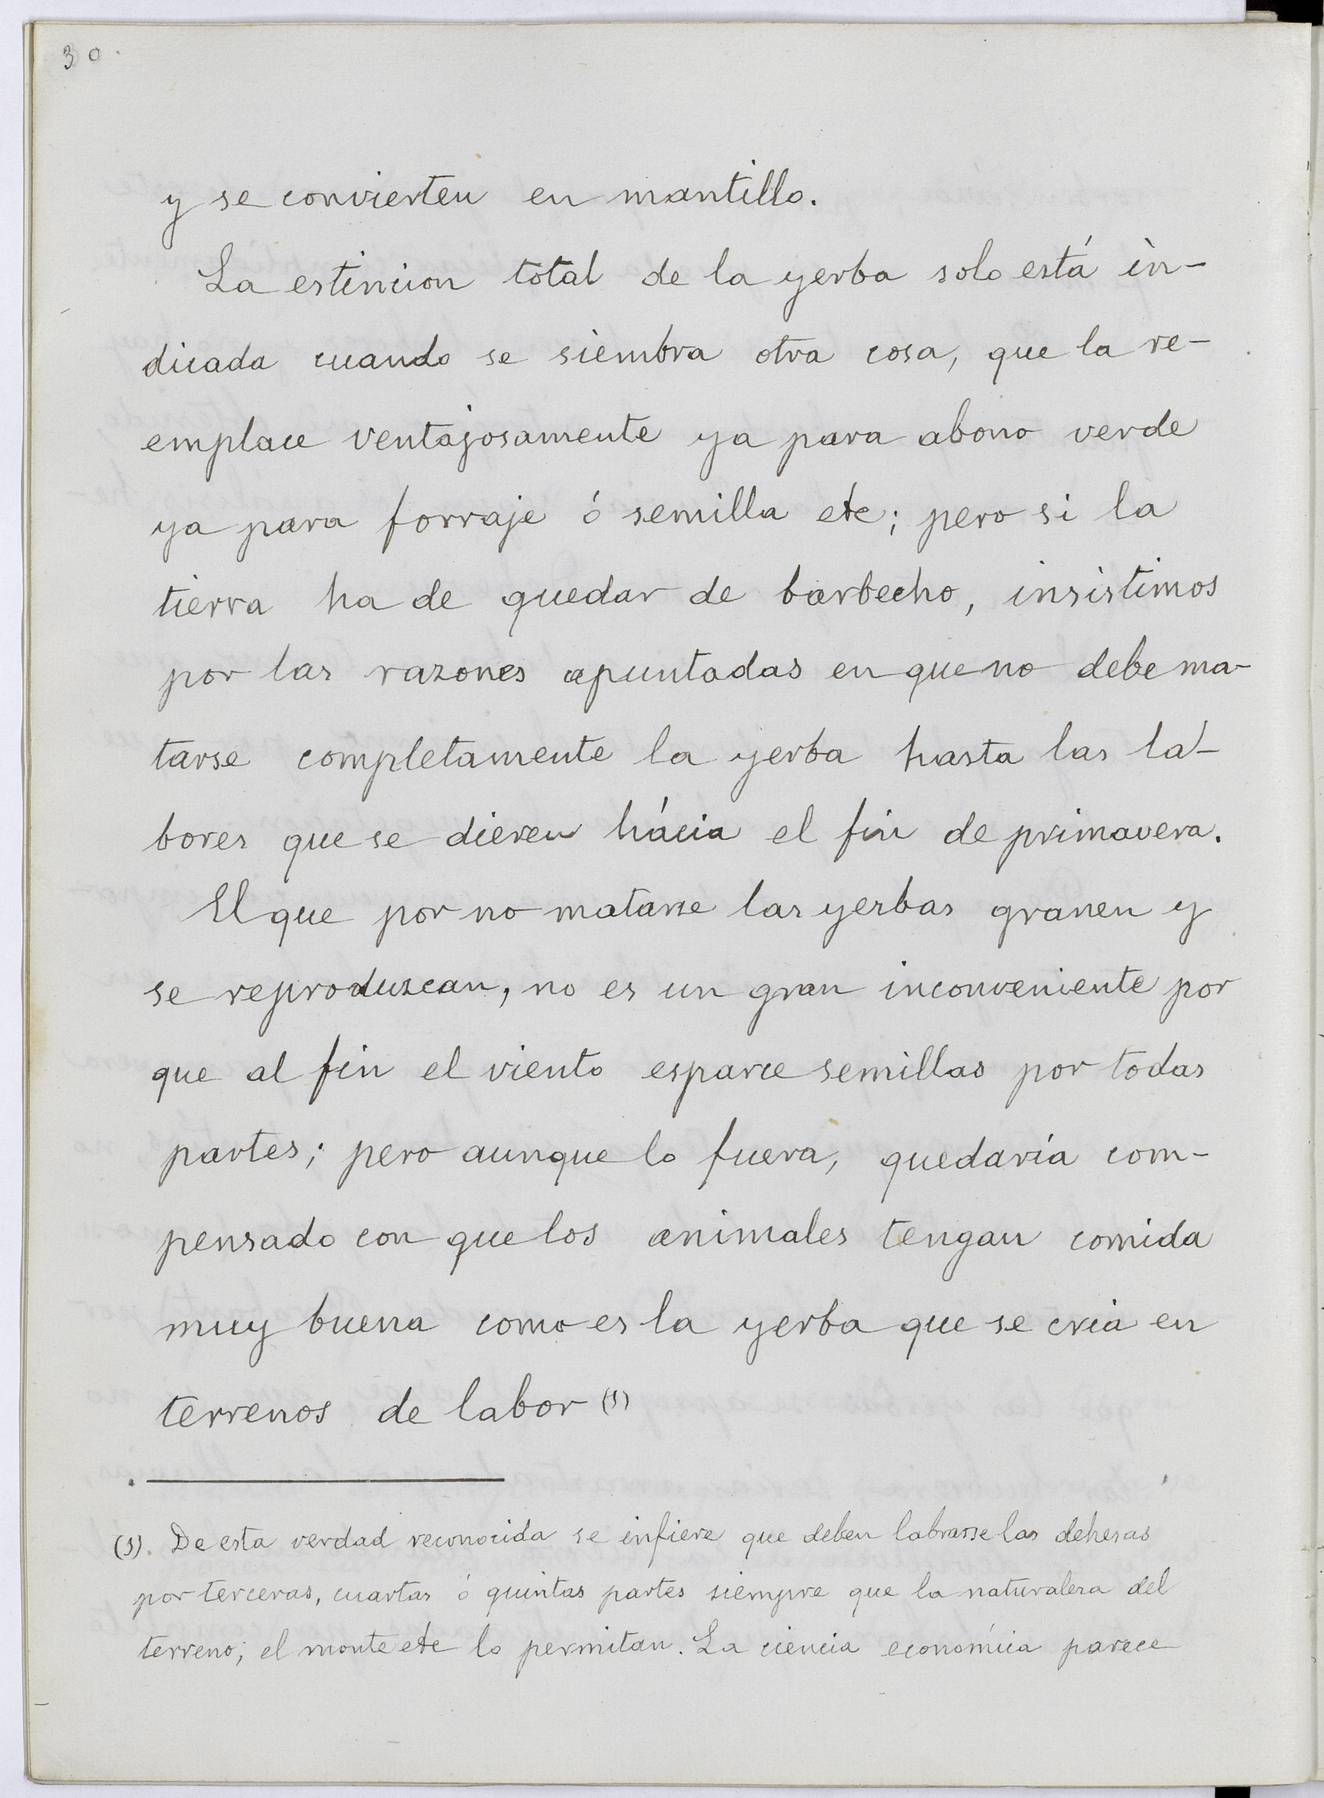 30.
y se convierten en mantillo.
La estincion total de la yerba solo está in-
dicada cuando se siembra otra cosa, que la re-
emplace ventajosamente ya para abono verde
ya para forraje ó semilla etc; pero si la
tierra ha de quedar de barbecho, insistimos
por las razones apuntadas en que no debe ma-
tarse completamente la yerba hasta las la-
bores que se dieren hácia el fin de primavera.
El que por no matarse las yerbas granen y
se reproduzcan, no es un gran inconveniente por
que al fin el viento esparce semillas por todas
partes; pero aunque lo fuera, quedaría com-
pensado con que los animales tengan comida
muy buena como es la yerba que se cria en
terrenos de labor (1)
(1). De esta verdad reconocida se infiere que deben labrarse las dehesas
por terceras, cuartas ó quintas partes siempre que la naturalesa del
terreno; el monte etc lo permitan. La ciencia económica parece